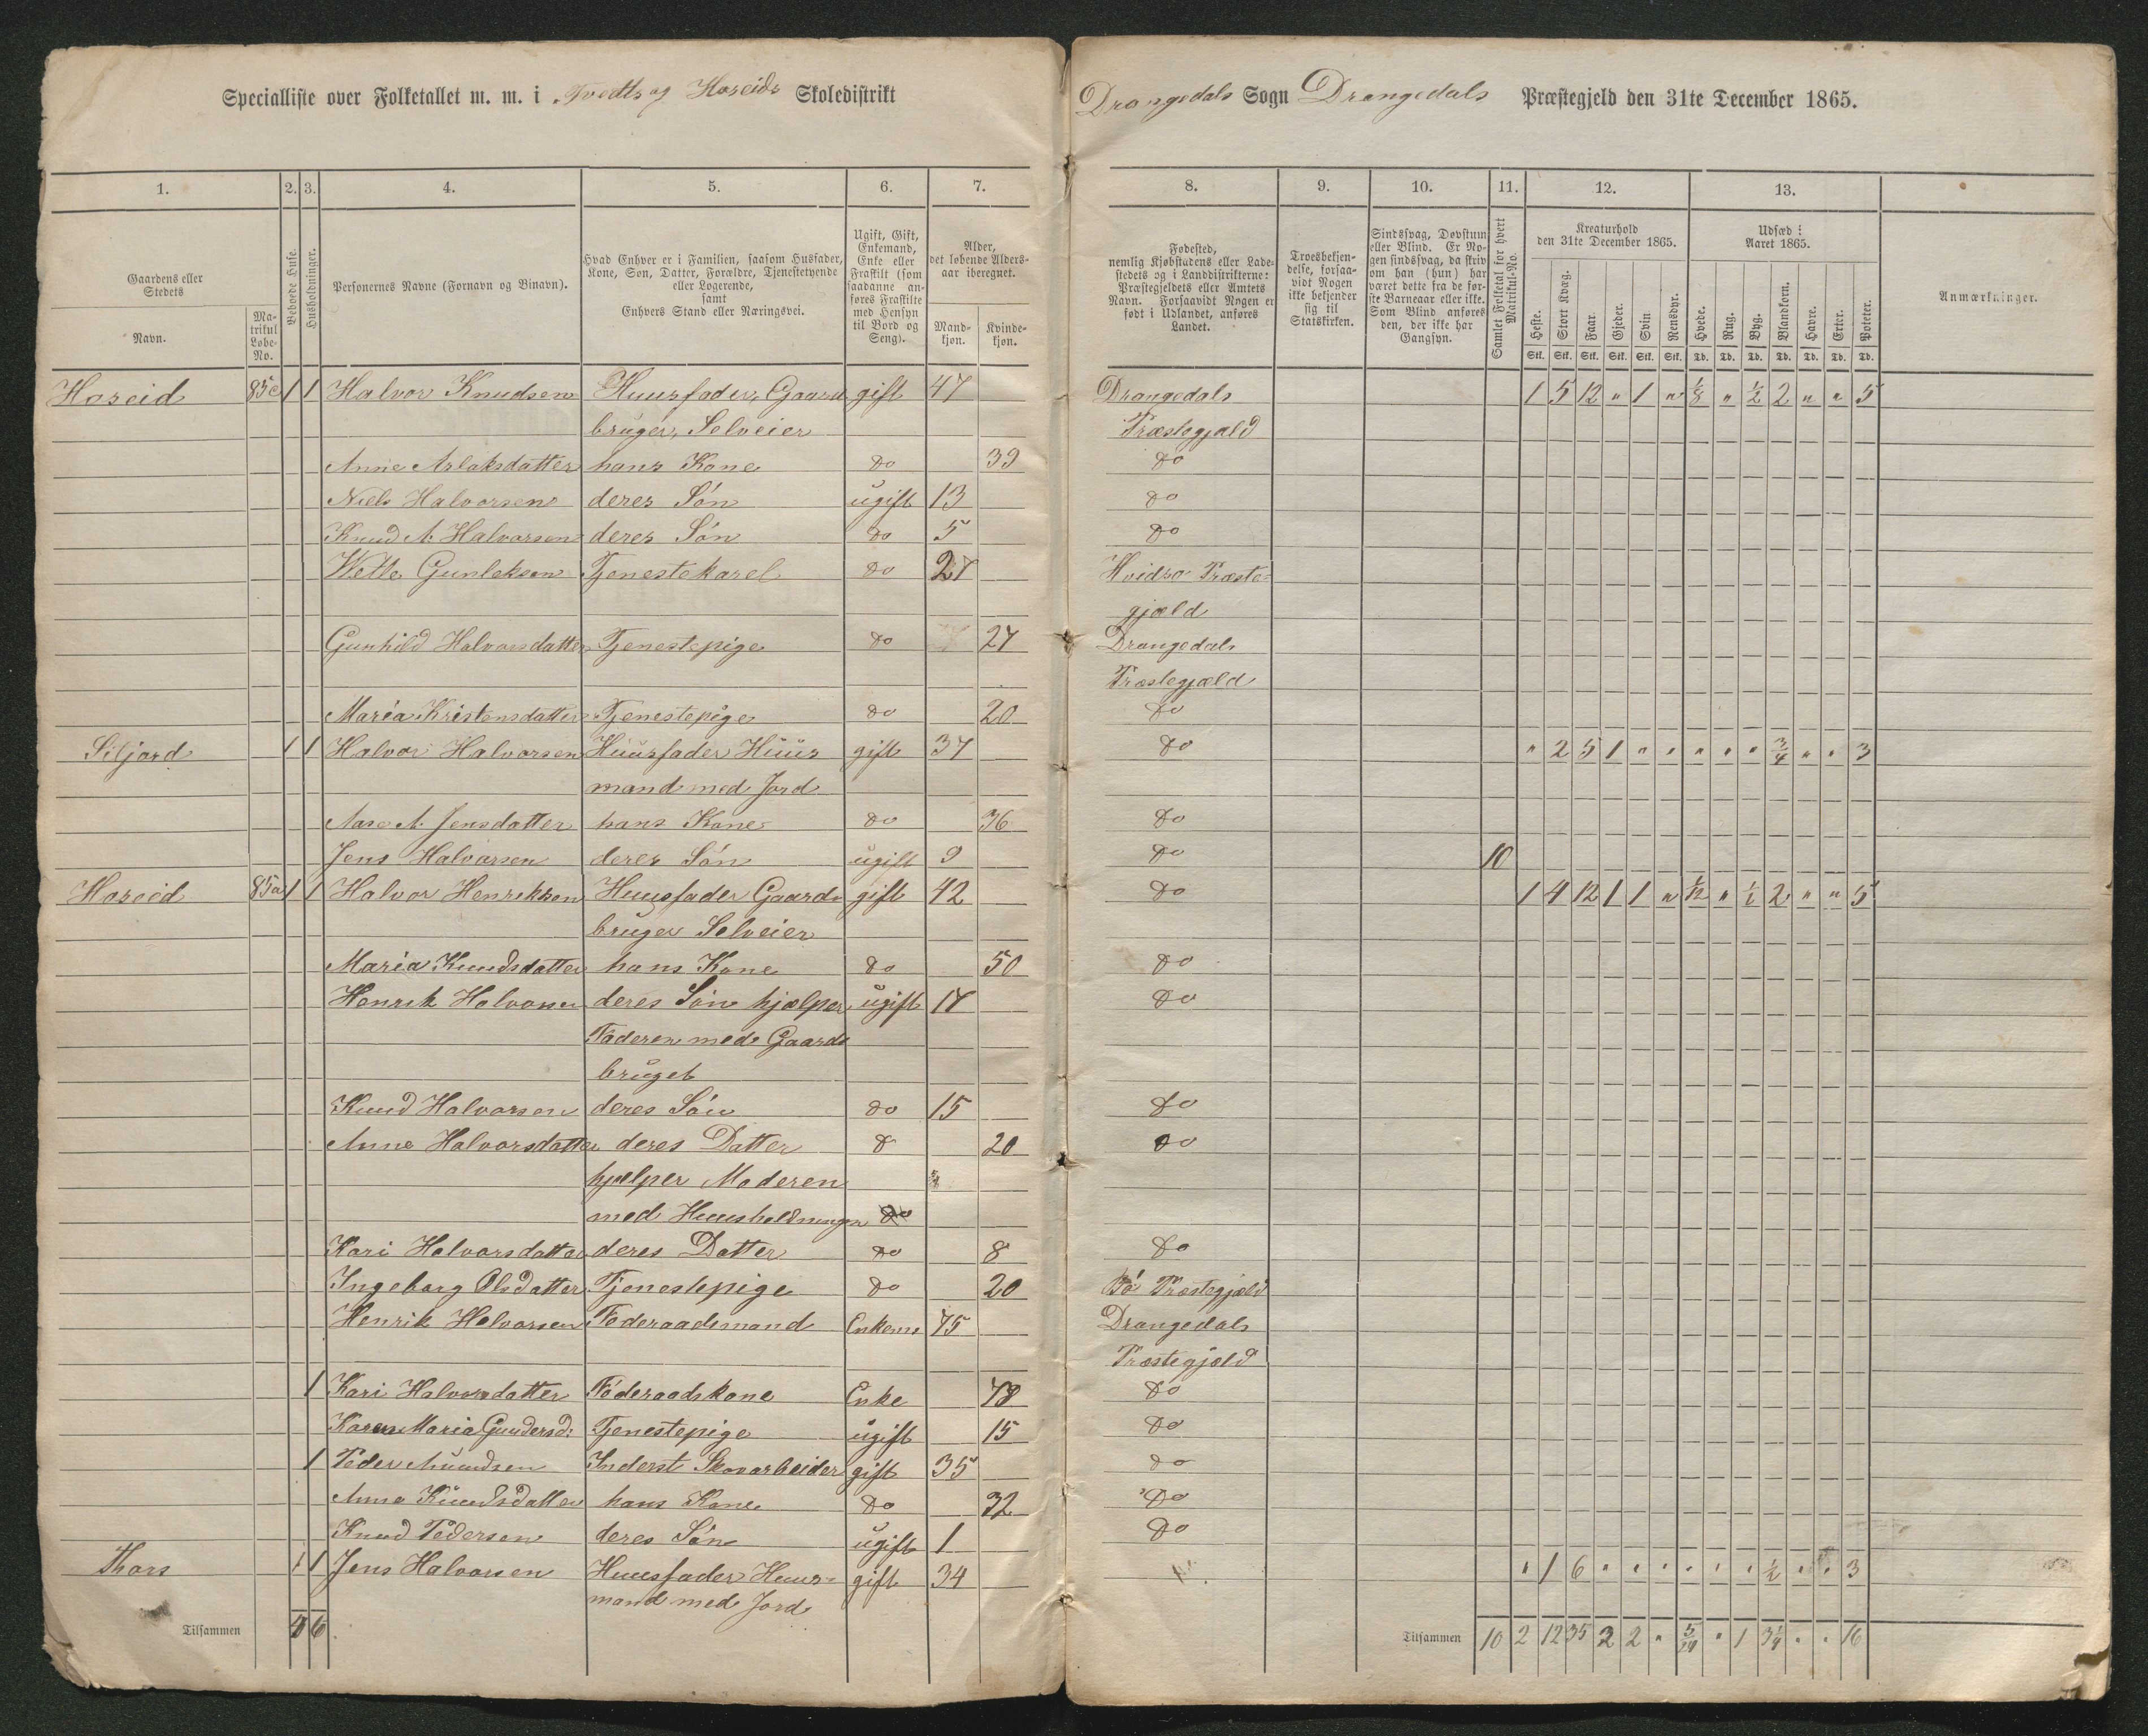 Specialliste over Folketallet m. m. i Tvedts og Hoseids Skoledistrikt
Drangedals Sogn Drangedals Præstegjeld den 31te December 1865.
1. 2. 3. 4. 5. 6. 7.
8. 9. 10. 11. 12. 13.
Gaardens eller Stedets
Navn.
Matrikul Løbe-No.
Beboede Huse.
Husholdninger.
Personernes Navne (Fornavn og Binavn).
Hvad Enhver er i Familien, saasom Husfader, Kone, Søn, Datter, Forældre, Tjenestetyende eller Logerende, samt Enhvers Stand eller Næringsvei.
Ugift, Gift, Enkemand, Enke eller Fraskilt (som saadanne anføres Fraskilte med Hensyn til Bord og Seng).
Alder, det løbende Alders-aar iberegnet.
Mandkjøn. Kvindekjøn.
Fødested, nemlig Kjøbstadens eller Ladestedets og i Landdistrikterne: Præstegjeldets eller Amtets Navn. Forsaavidt Nogen er født i Udlandet, anføres Landet.
Troesbekjendelse, forsaavidt Nogen ikke bekjender sig til Statskirken.
Sindssvag, Døvstum eller Blind. Er Nogen sindssvag, da skriv om han (hun) har været dette fra de første Barneaar eller ikke. Som Blind anføres den, der ikke har Gangsyn.
Samlet Folketal for hvert Matrikul-No.
Kreaturhold den 31te December 1865.
Heste. Stort Kvæg. Faar. Gjeder. Svin. Rensdyr.
Stk. Stk. Stk. Stk. Stk. Stk.
Udsæd i Aaret 1865.
Hvede. Rug. Byg. Blandkorn. Havre. Erter. Poteter.
Td. Td. Td. Td. Td. Td. Td.
Anmærkninger.
Hoseid 85c 1 1 Halvor Knudsen Huusfader, Gaard gift 47 Drangedals 1 5 12 " 1 " 1/8 " 1/2 2 " " 5
bruger, Selveier Præstegjæld
Anne Aslaksdatter hans Kone do 39 do
Niels Halvorsen deres Søn ugift 13 do
Knud A. Halvorsen deres Søn do 5 do
Vetle Gunleksen Tjenestekarel do 27 Hvidsø Præste-
gjæld
Gunhild Halvorsdatter Tjenestepige do 27 Drangedals
Præstegjæld
Maria Kristensdatter Tjenestepige do 20 do
Siljord 1 1 Halvor Halvorsen Huusfader Huus gift 37 do " 2 5 1 " " " " " 3/4 " " 3
mand med Jord
Aase A. Jensdatter hans Kone do 36 do
Jens Halvorsen deres Søn ugift 9 do 10
Hoseid 85a 1 1 Halvor Henriksen Huusfader Gaard gift 42 do 1 4 12 1 1 " 1/12 " 1/2 2 " " 5
bruger Selveier
Maria Knudsdatter hans Kone do 50 do
Henrik Halvorsen deres Søn hjælper ugift 17 do
Faderen med Gaards
bruget
Knud Halvorsen deres Søn do 15 do
Anne Halvorsdatter deres Datter do 20 do
hjælper Moderen
med Huusholdningen do
Kari Halvorsdatter deres Datter do 8 do
Ingeborg Olsdatter Tjenestepige do 20 Bø Præstegjæld
Henrik Halvorsen Føderaadsmand Enkem 75 Drangedals
Præstegjæld
1 Kari Halvorsdatter Føderaadskone Enke 78 do
Karen Maria Gundersd: Tjenestepige ugift 15 do
1 Peder Amundsen Inderst Skovarbeider gift 35 do
Anne Knudsdatter hans Kone do 32 do
Knud Pedersen deres Søn ugift 1 do
Thors 1 1 Jens Halvorsen Huusfader Huus- gift 34 " 1 6 " " " " " " 1/2 " " 3
mand med Jord
Tilsammen 4 6
Tilsammen 10 2 12 35 2 2 " 5/24 " 1 " " 16